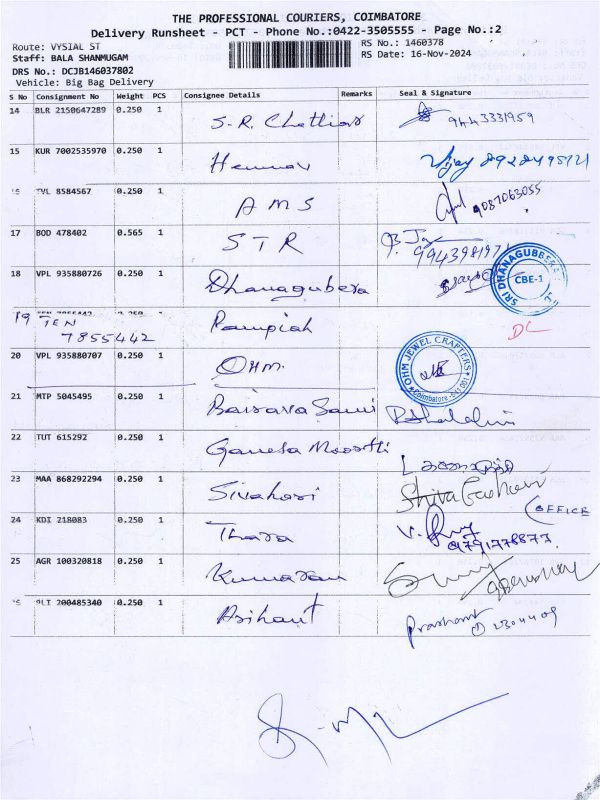 THE PROFESSIONAL COURIERS, COIMBATORE
Delivery Runsheet - PCT - Phone No.:0422-3505555 - Page No.:2
Route: VYSIAL ST
RS No.: 1460378
Staff: BALA SHANMUGAM
RS Date: 16-Nov-2024
DRS No.: DCJB146037802
Vehicle: Big Bag Delivery
S No Consignment No Weight PCS Consignee Details Remarks Seal & Signature
14 BLR 2150647289 0.250 1 S.R. Chettiar 9443331959
15 KUR 7002535970 0.250 1 Vijay
TVL 8584567 0.250 1 AMS 9087063055
17 BOD 478402 0.565 1 STR
18 VPL 935880726 0.250 1 Dhanagubera
SRI DHANAGUBBERA CBE-1
19 TEN 7855442 Rampiah DL
20 VPL 935880707 0.250 1 OHM.
OHM JEWEL CRAPTERS Coimbatore
21 MTP 5045495 0.250 1
22 TUT 615292 0.250 1 Ganesa Moorthi
23 MAA 868292294 0.250 1 Sivahari
24 KDI 218083 0.250 1 Thara OFFICE
9791778877
25 AGR 100320818 0.250 1 Kumaran
200485340 0.250 1 Arihant Prashant